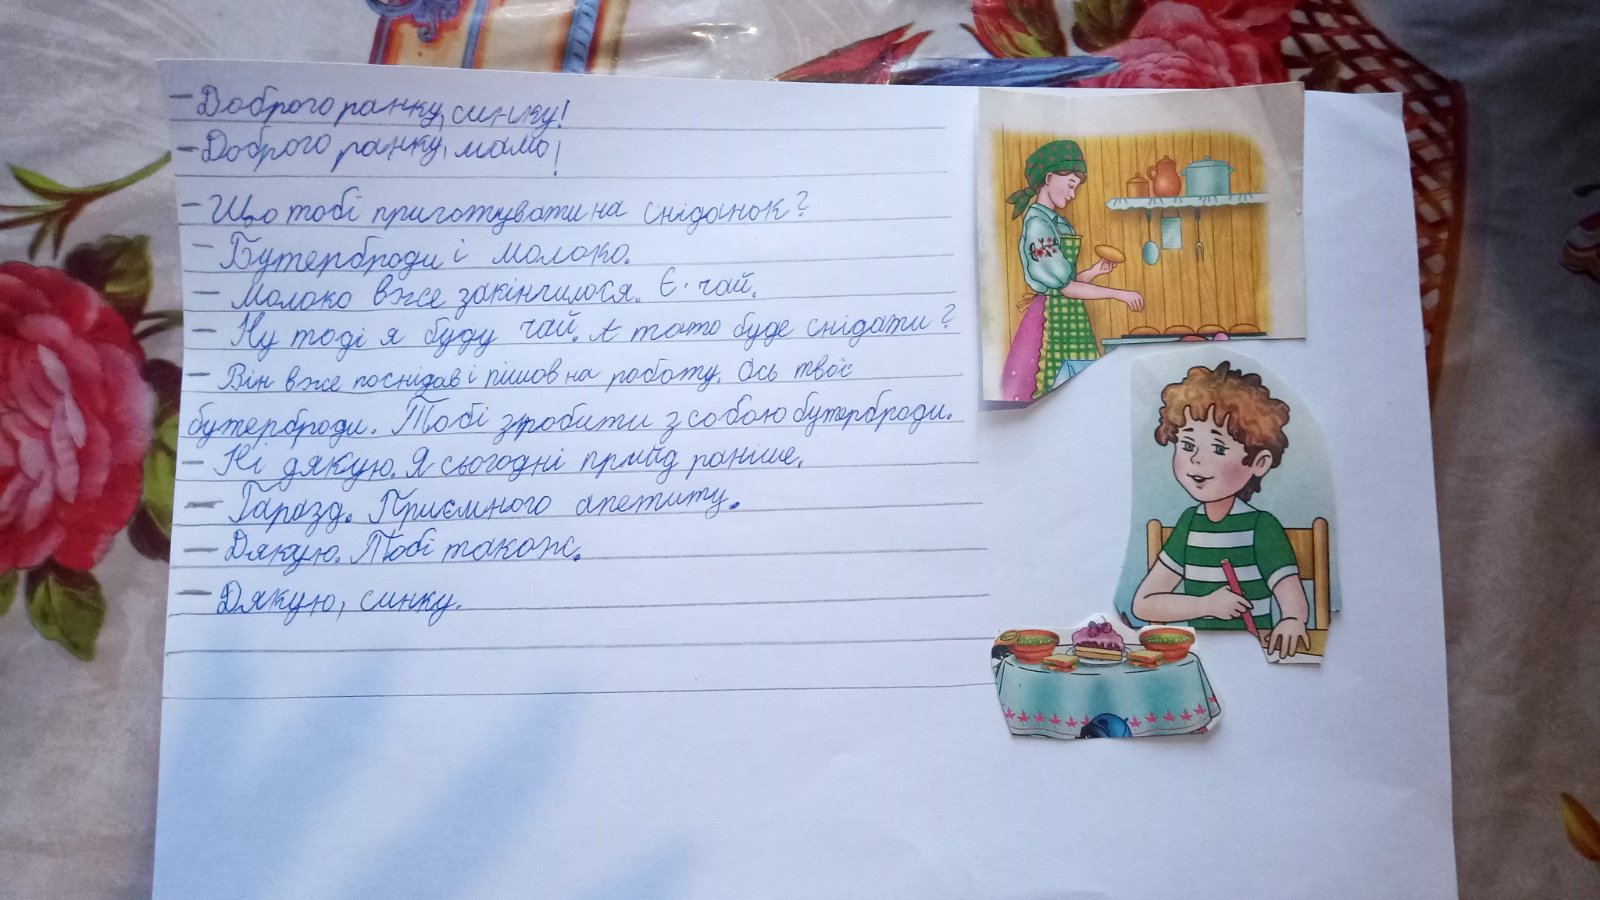 - Доброго ранку, синку!
- Доброго ранку, мамо!
- Що тобі приготувати на сніданок?
- Бутерброди і молоко.
- Молоко вже закінчилося. Є чай.
- Ну тоді я буду чай. А тато буде снідати?
- Він вже поснідав і пішов на роботу. Ось твої
бутерброди. Тобі зробити з собою бутерброди.
- Ні дякую. Я сьогодні прийд раніше.
- Гаразд. Приємного апетиту.
- Дякую. Тобі також.
- Дякую, синку.